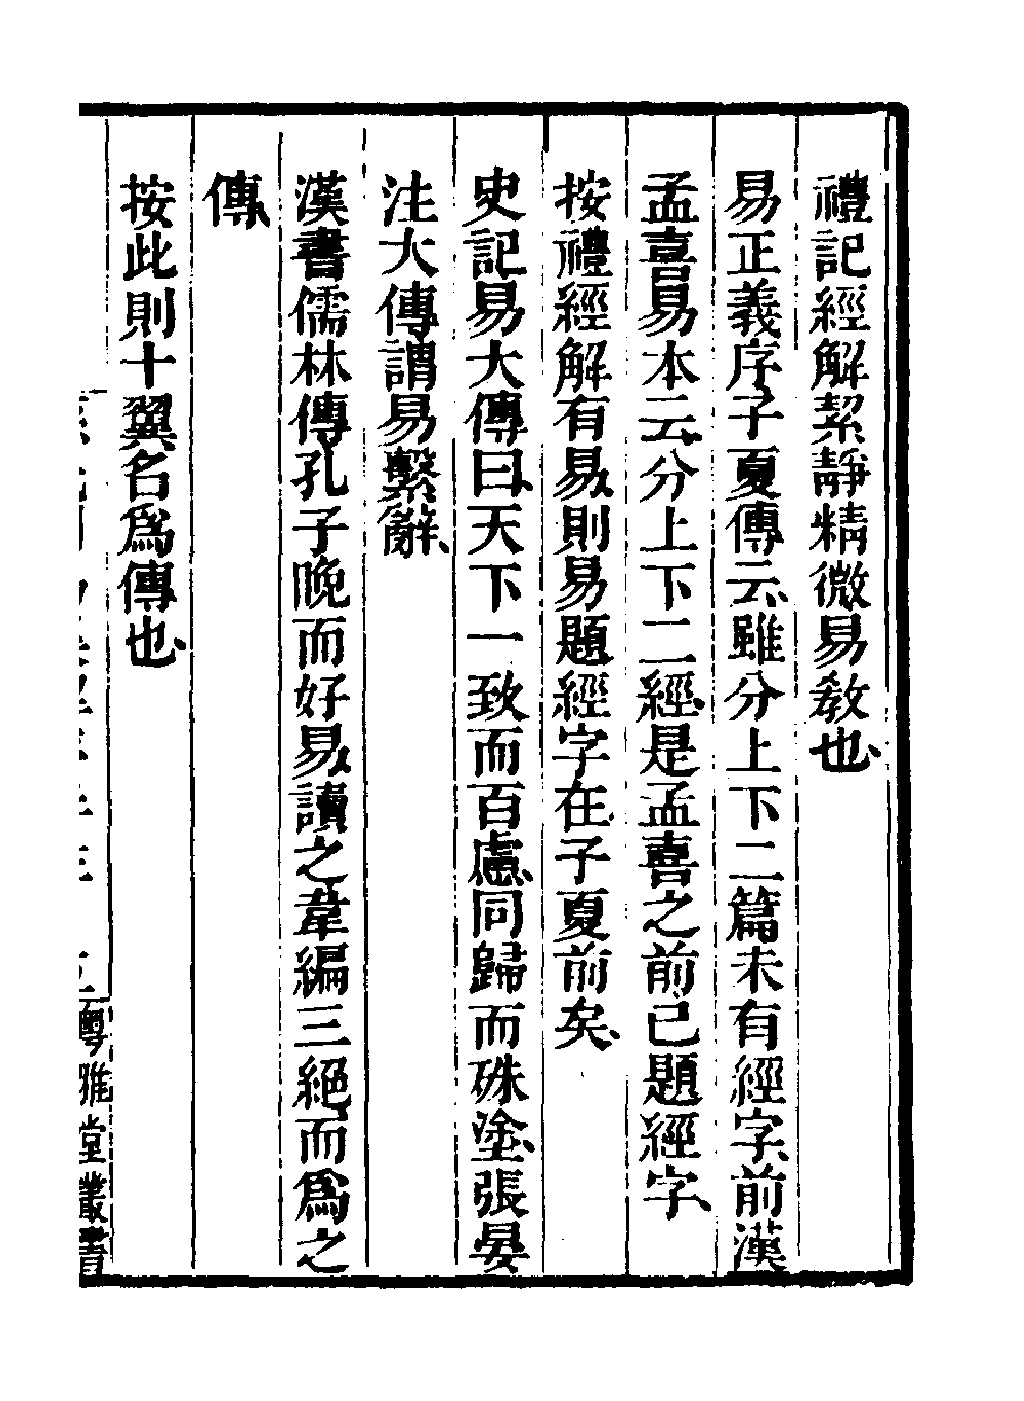 禮記經解絜靜精微易教也、
易正義序子夏傳云、雖分上下二篇未有經字、前漢
孟喜易本云、分上下二經、是孟喜之前已題經字、
按禮經解有易、則易題經字在子夏前矣、
史記易大傳曰、天下一致而百慮、同歸而殊塗、張晏
注大傳謂易繫辭、
漢書儒林傳、孔子晚而好易、讀之韋編三絕、而爲之
傳、
按此則十翼名爲傳也、
粵雅堂叢書